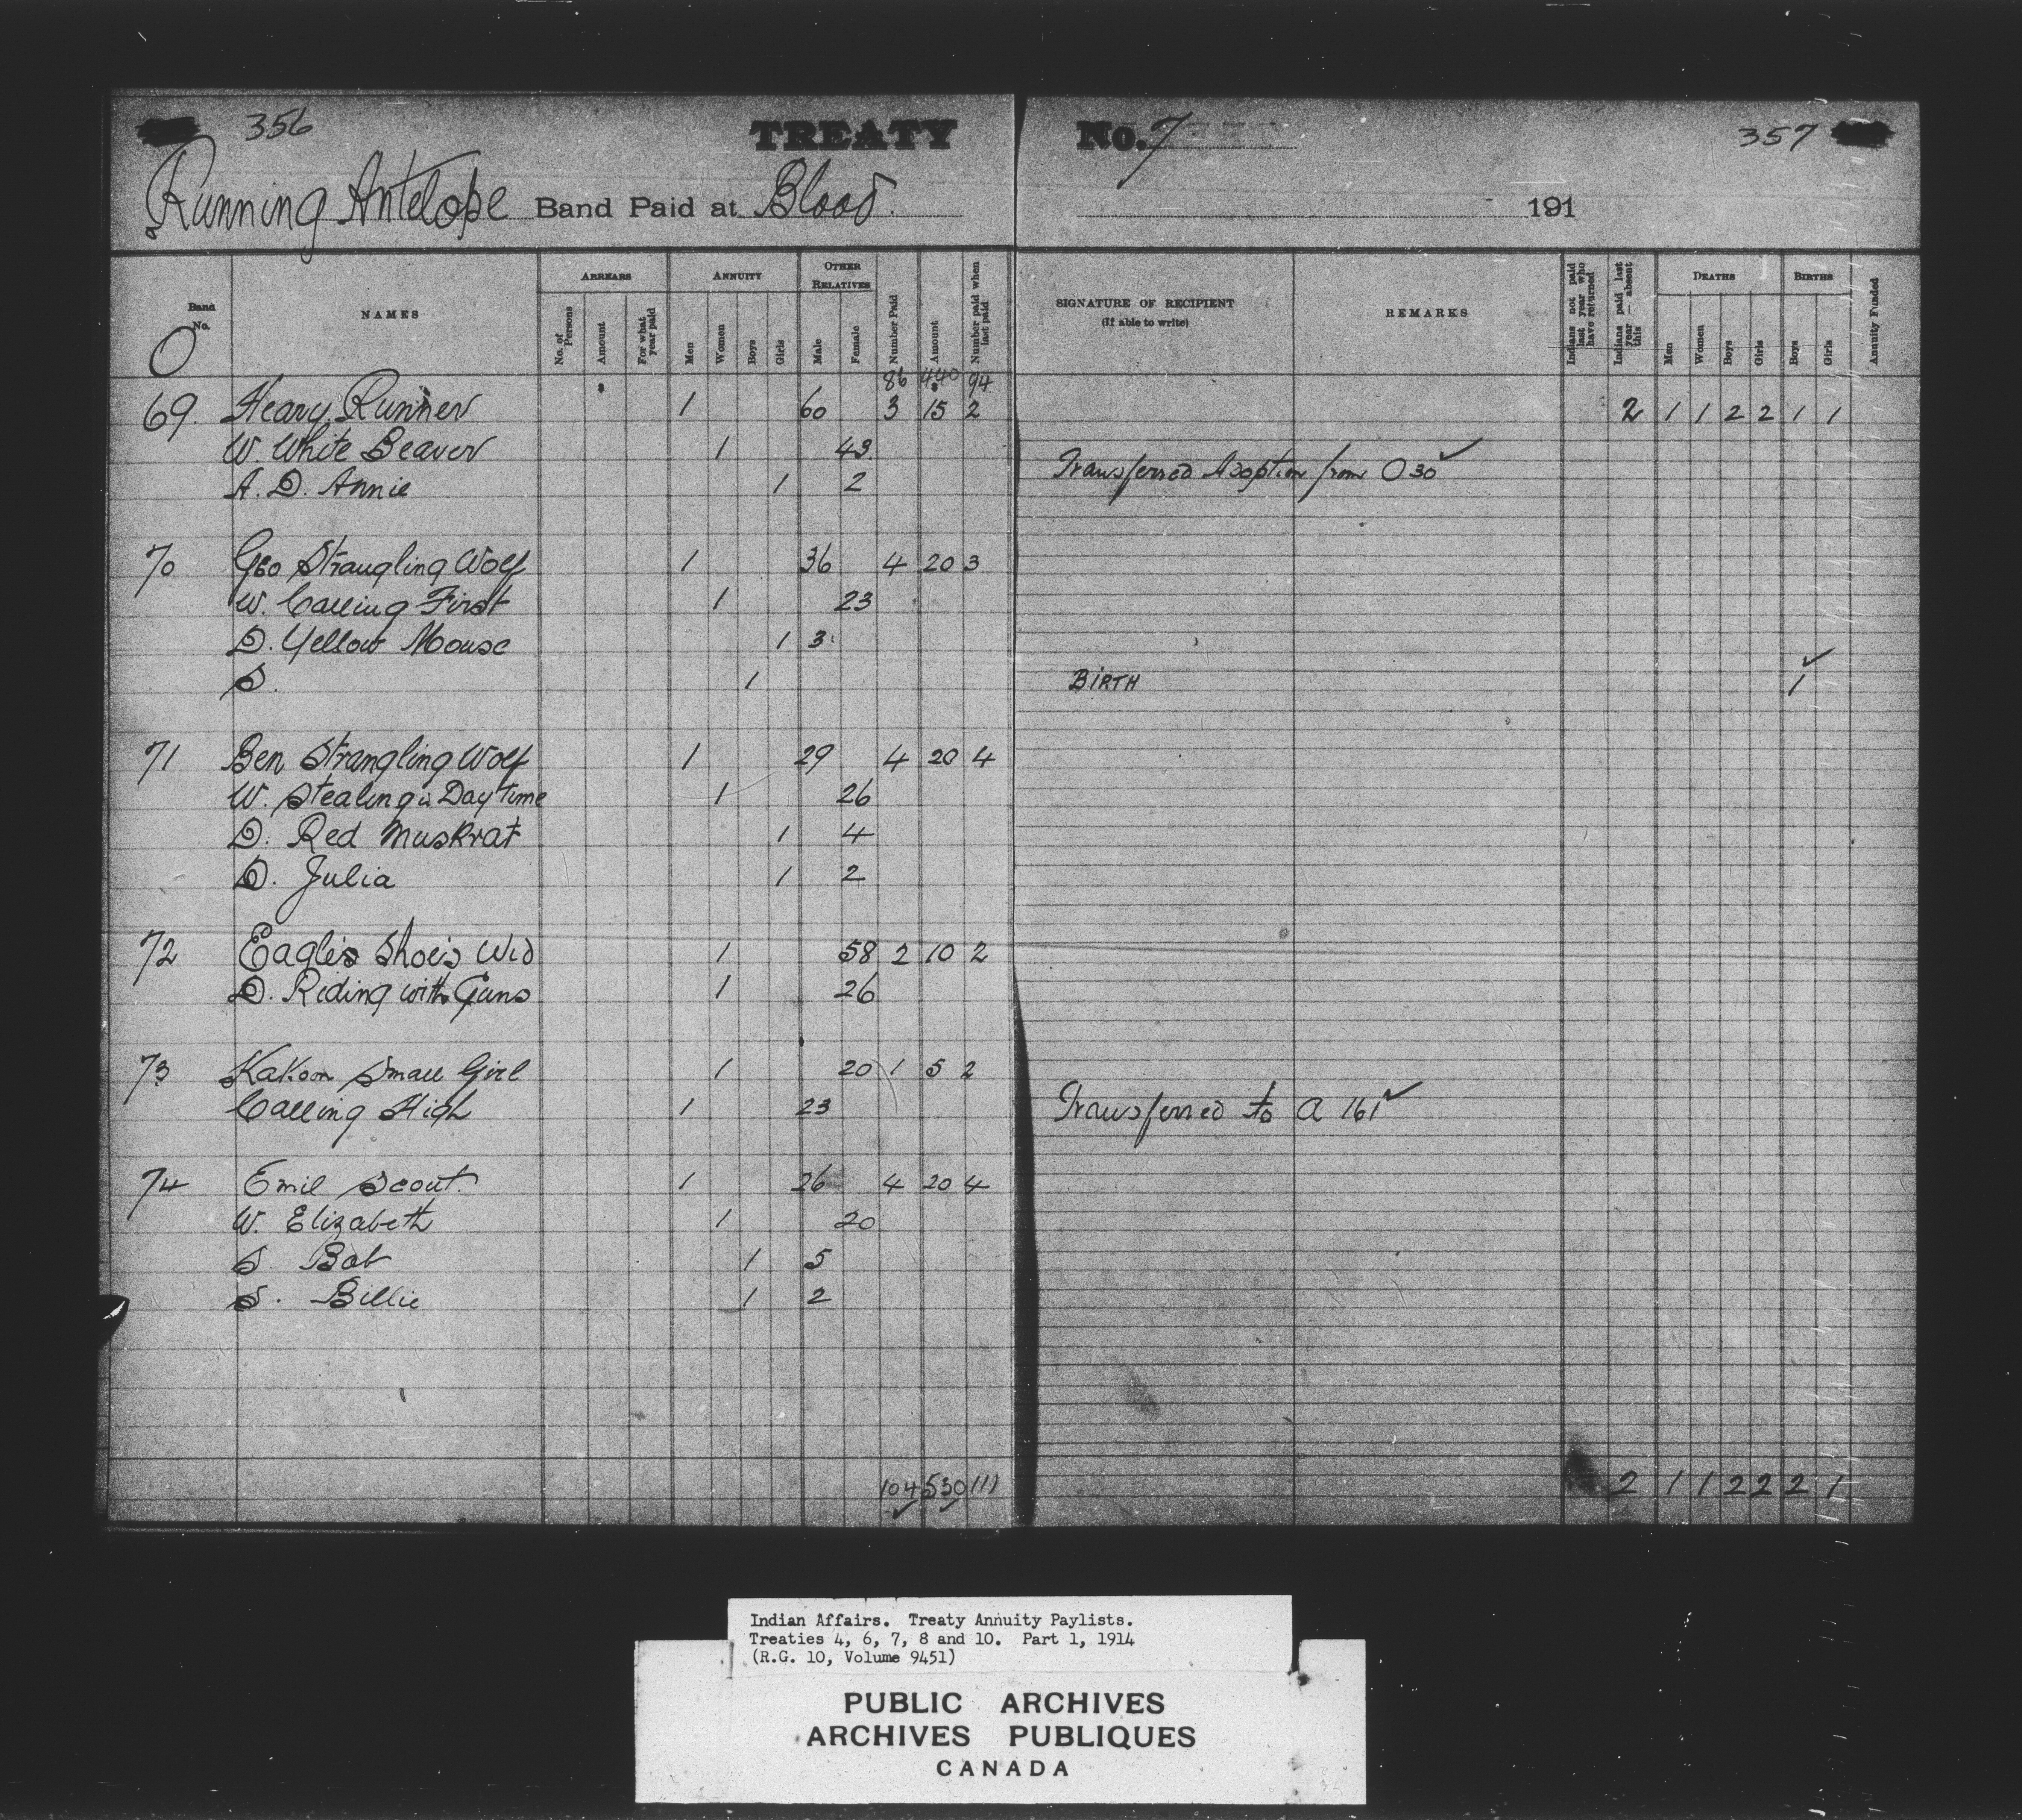 356 TREATY No. 7 357
Running Antelope Band Paid at Blood. 191
Band No. NAMES ARREARS ANNUITY OTHER RELATIVES Number Paid Amount Number paid when last paid SIGNATURE OF RECIPIENT (If able to write) REMARKS Indians not paid last year who have returned Indians paid last year — absent this DEATHS BIRTHS Annuity Funded
No. of Persons Amount For what year paid Men Women Boys Girls Male Female Men Women Boys Girls Boys Girls
O
86 440 94
69. Heavy Runner 1 60 3 15 2 2 1 1 2 2 1 1
W. White Beaver 1 43
Transferred Adoption from O 30 ✓
A. D. Annie 1 2
70 Geo Strangling Wolf 1 36 4 20 3
W. Calling First 1 23
D. Yellow Mouse 1 3
S. 1 BIRTH ✓ 1
71 Ben Strangling Wolf 1 29 4 20 4
W. Stealing in Day Time 1 26
D. Red Muskrat 1 4
D. Julia 1 2
72 Eagle's Shoe's Wid 1 58 2 10 2
D. Riding with Guns 1 26
73 Kakoon Small Girl 1 20 1 5 2
Calling High 1 23 Transferred to A 161 ✓
74 Emil Scout. 1 26 4 20 4
W. Elizabeth 1 20
S Bob 1 5
S. Billie 1 2
104 530 111 2 1 1 2 2 2 1
Indian Affairs. Treaty Annuity Paylists.
Treaties 4, 6, 7, 8 and 10. Part 1, 1914
(R.G. 10, Volume 9451)
PUBLIC ARCHIVES
ARCHIVES PUBLIQUES
CANADA